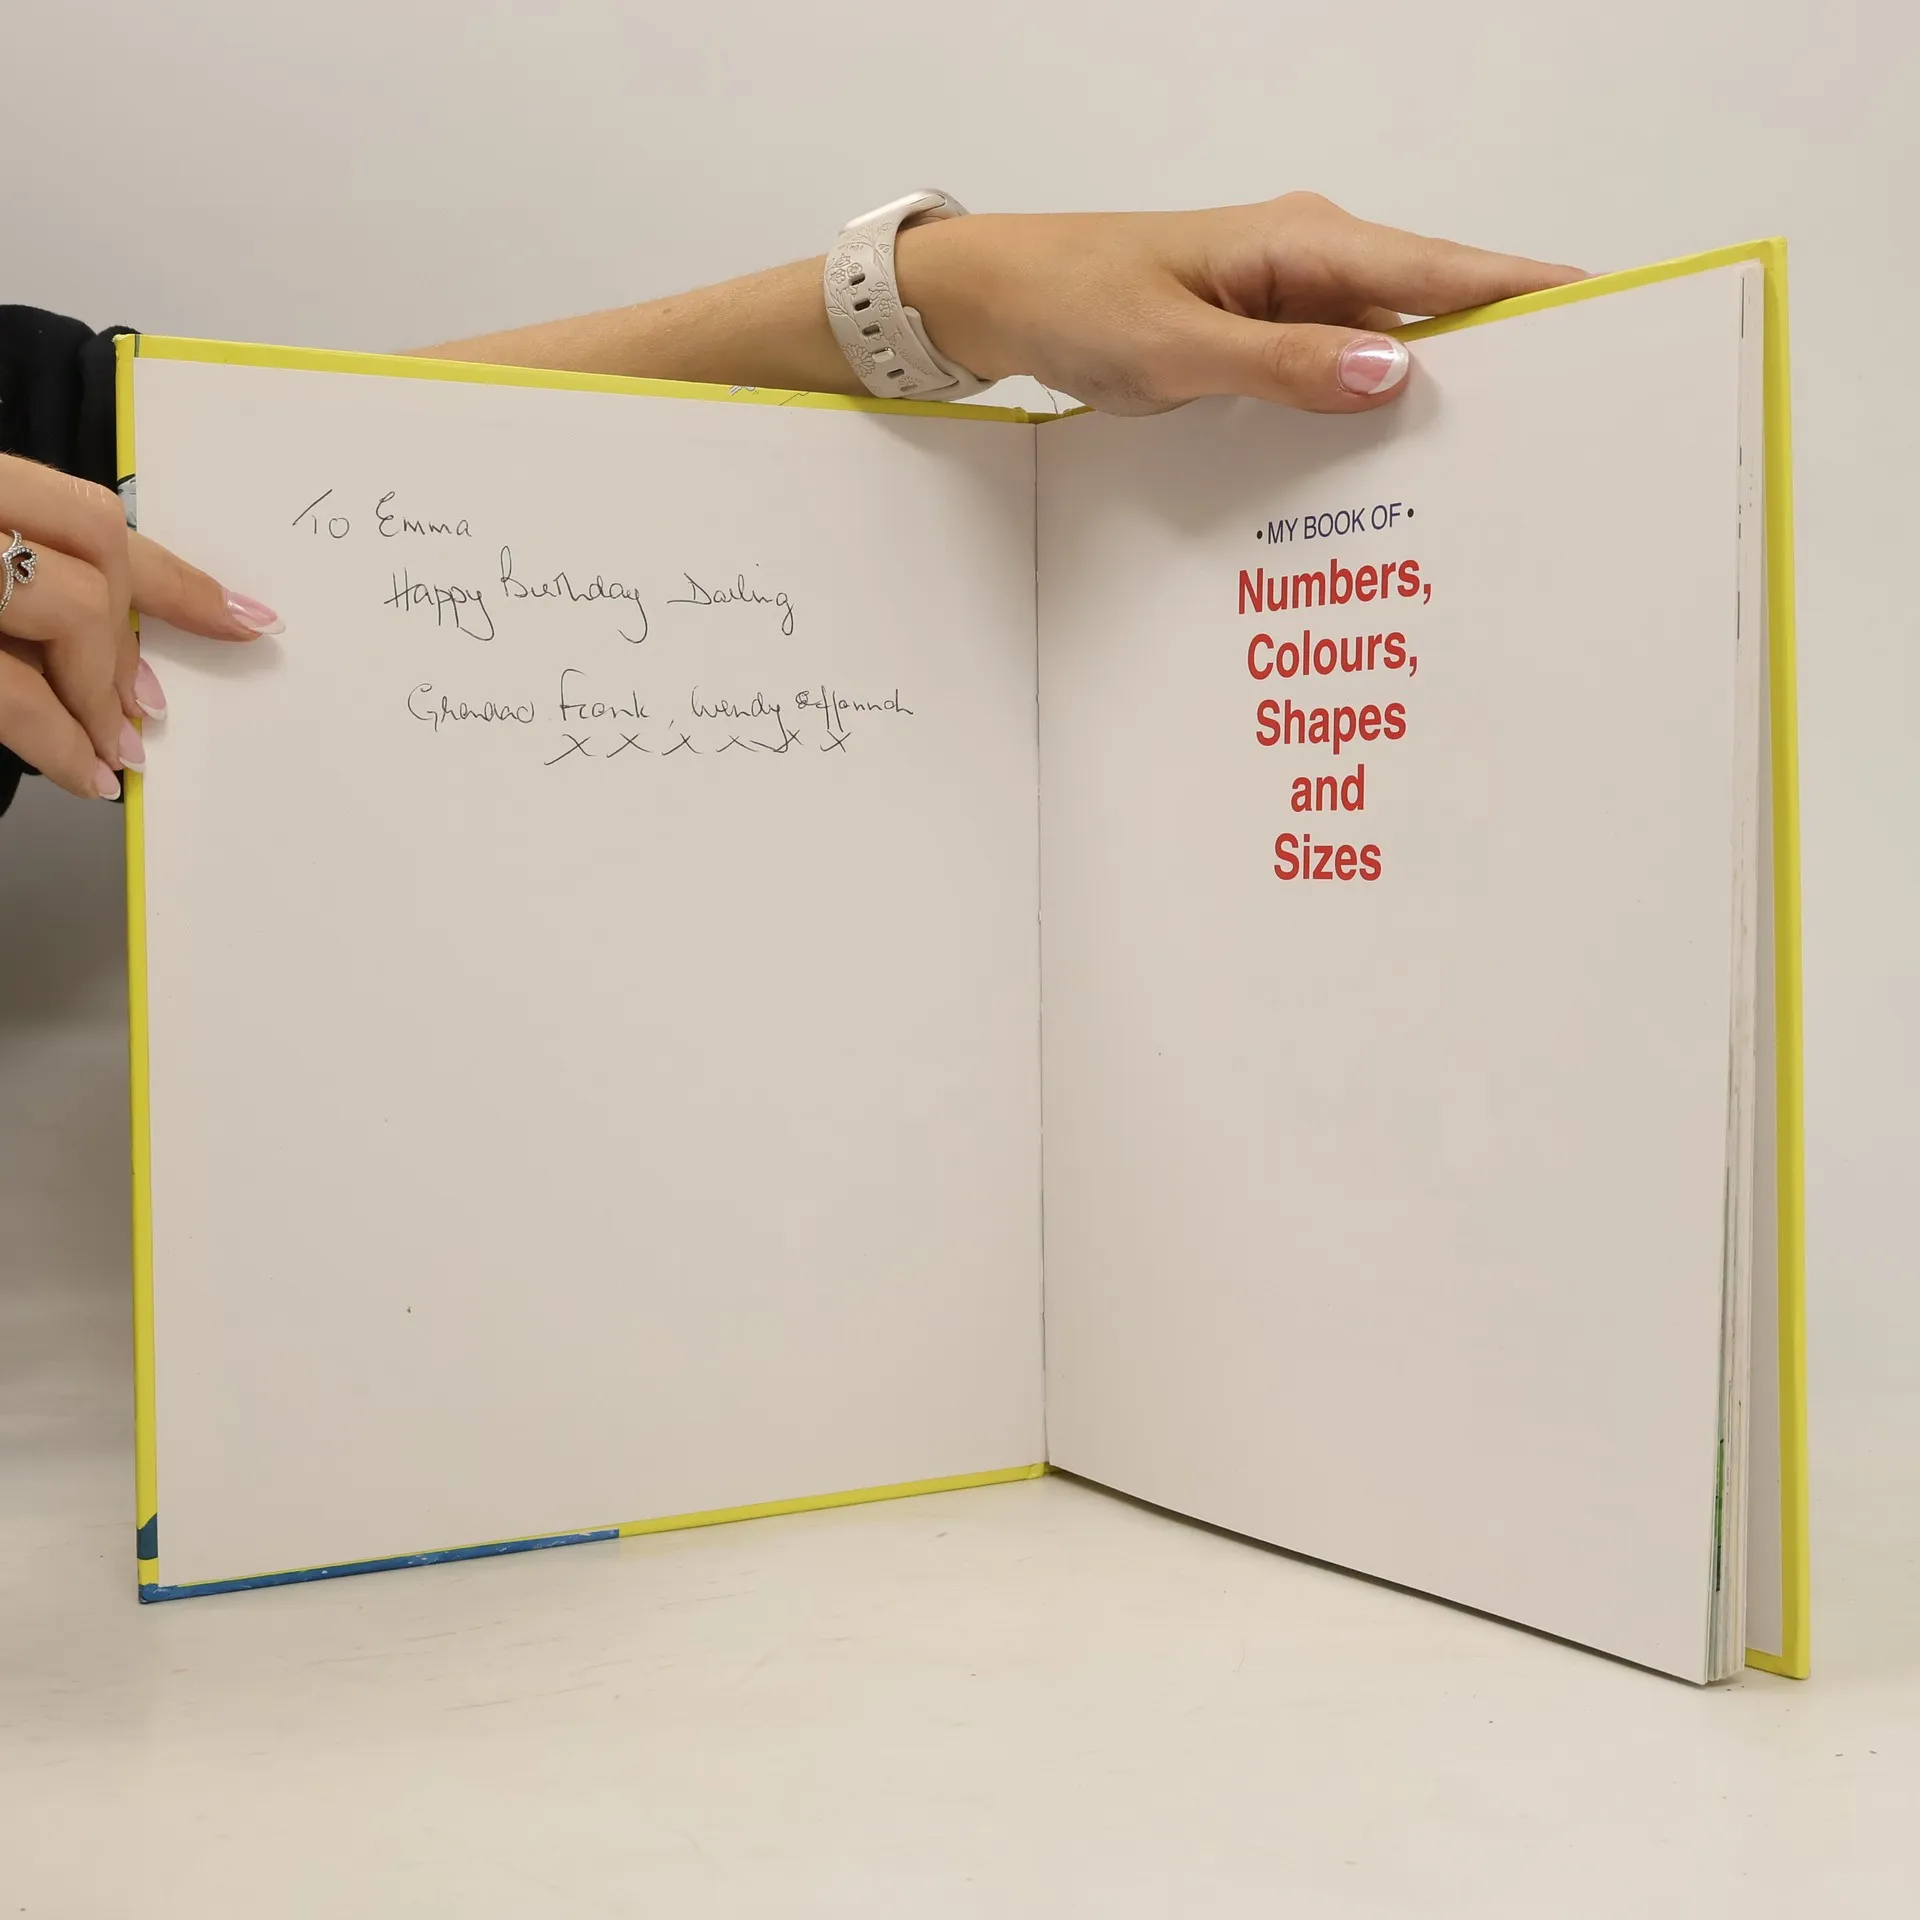 To Emma
Happy Birthday Darling
Grandad Frank, Wendy & Hannah
x x x x x x
• MY BOOK OF •
Numbers,
Colours,
Shapes
and
Sizes